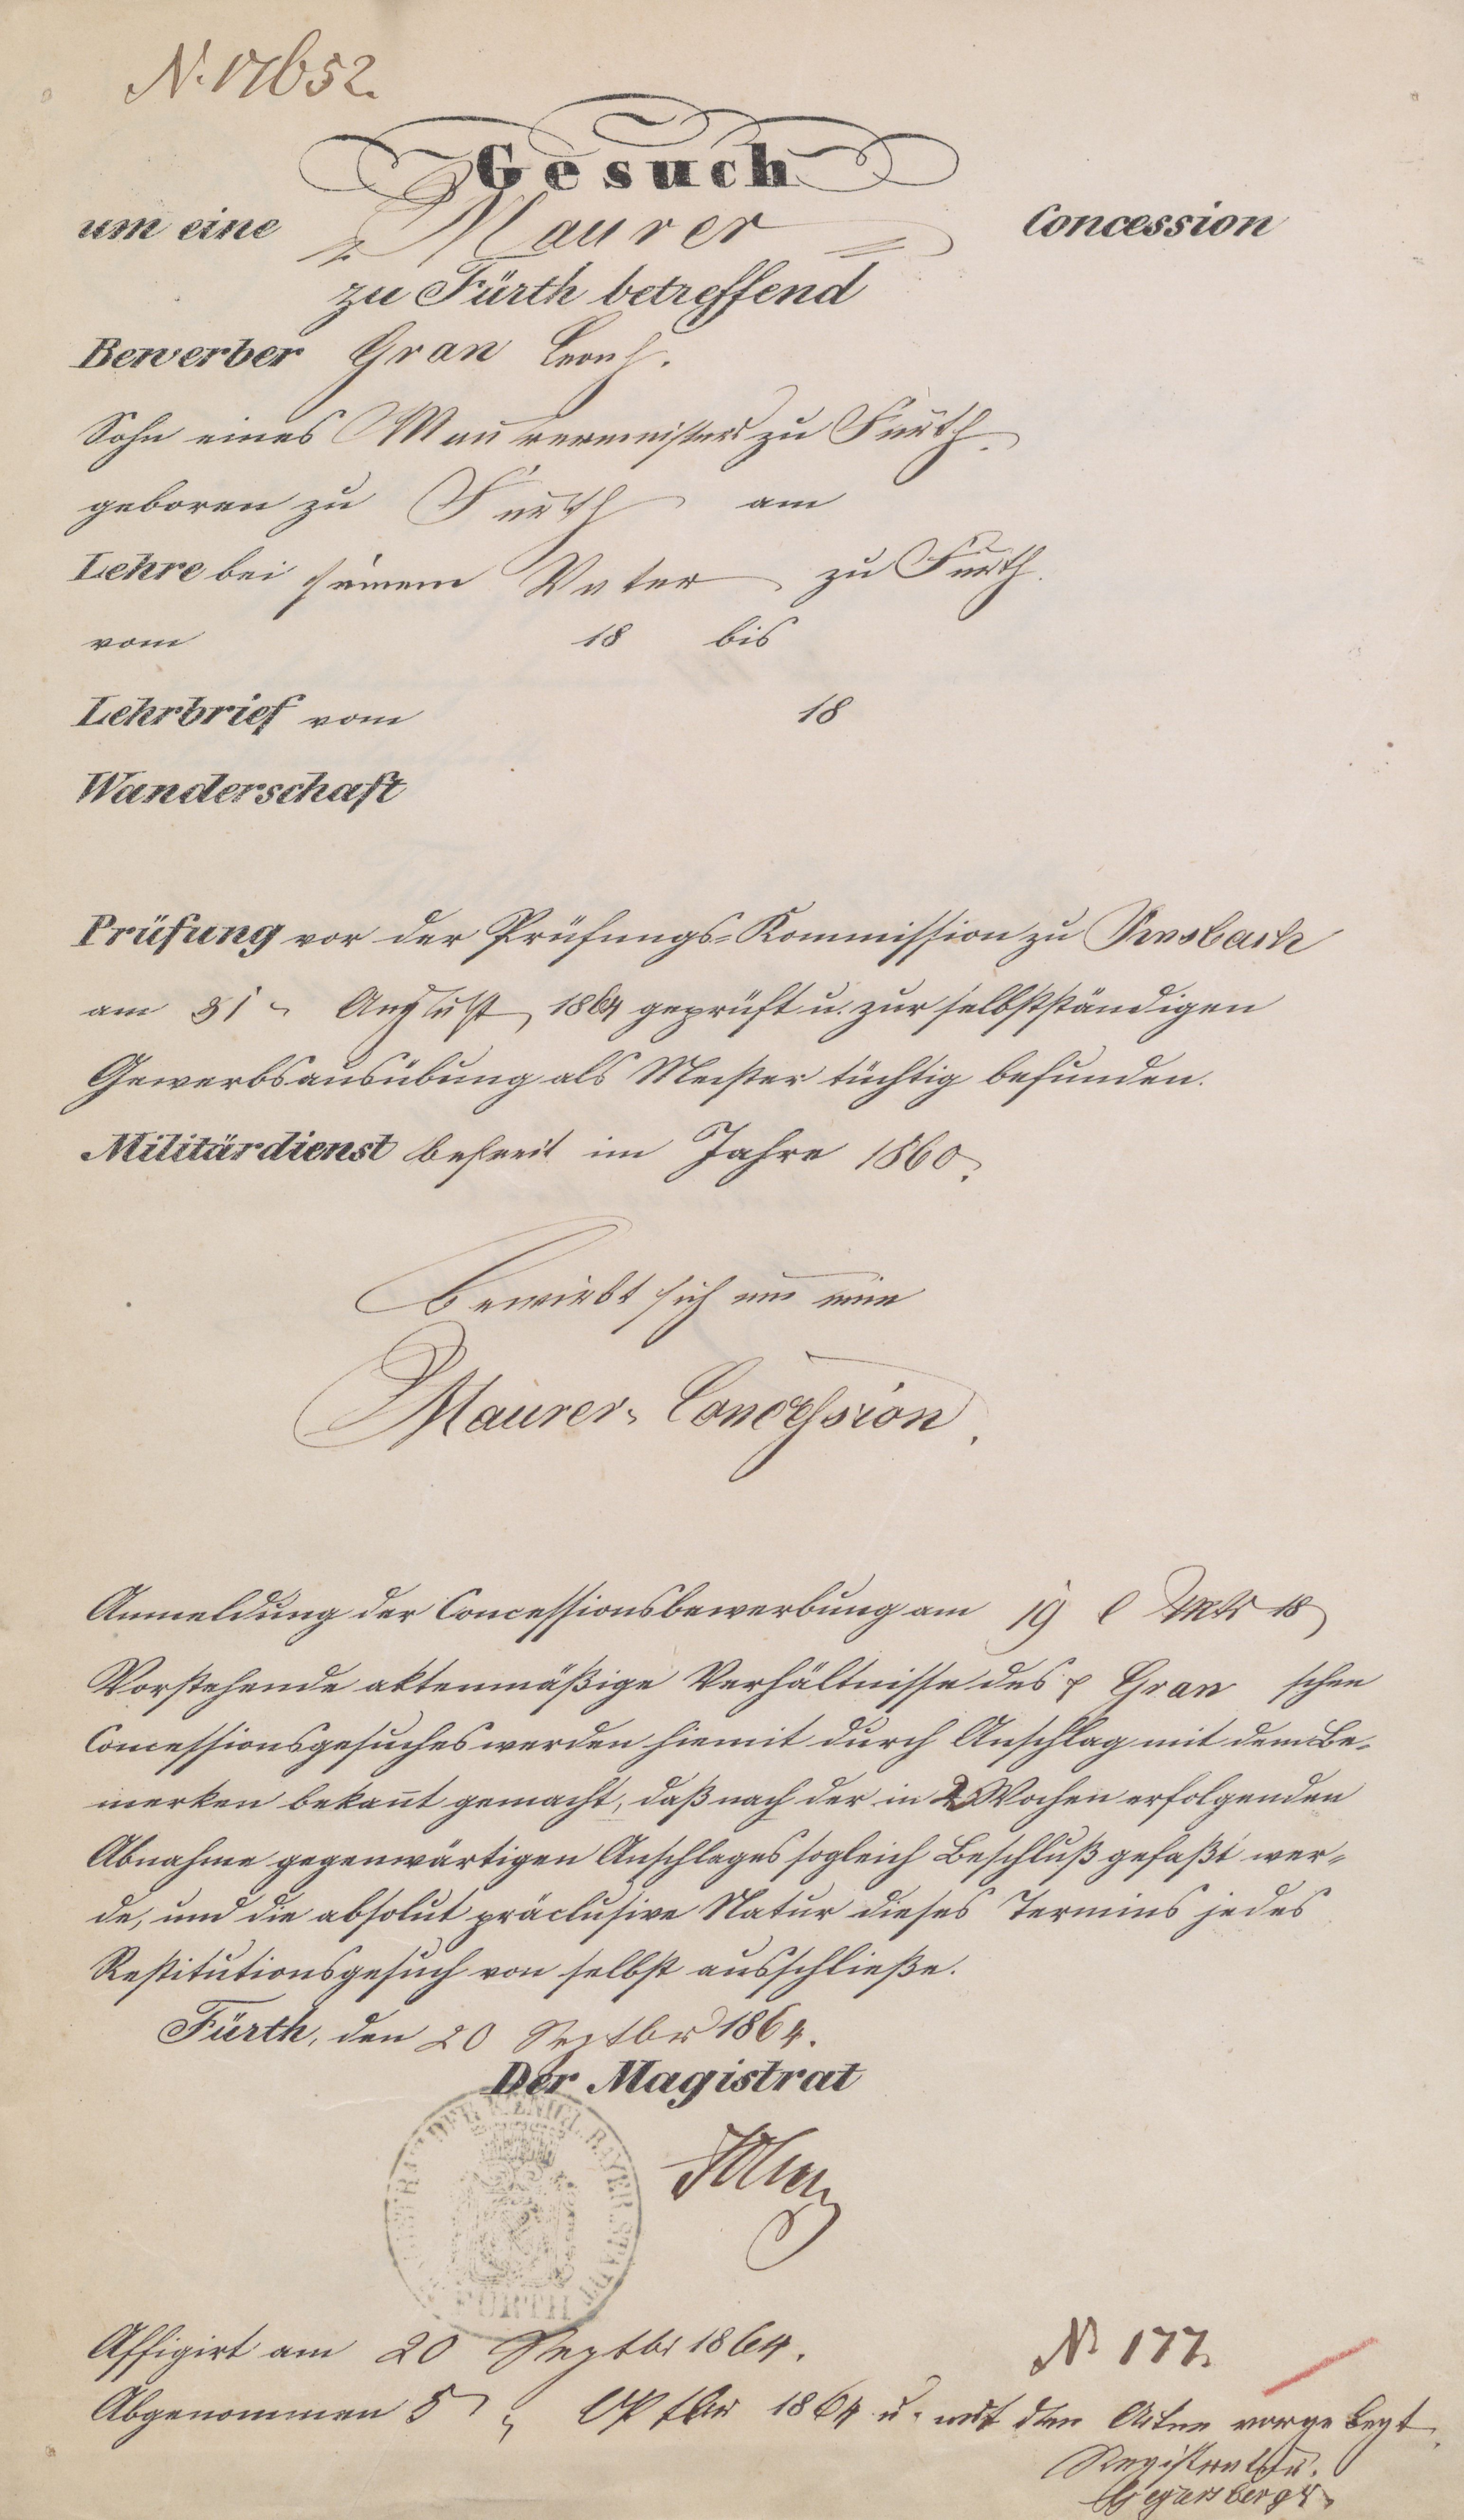 N. 17652.
Gesuch
um eine Maurer Concession
zu Fürth betreffend
Bewerber Gran Leonh.
Sohn eines Maurermeisters zu Fürth.
geboren zu Fürth am
Lehre bei seinem Vater zu Fürth.
vom 18 bis
Lehrbrief vom 18
Wanderschaft
Prüfung vor der Prüfungs-Kommission zu Ansbach
am 31 August 1864 geprüft u. zur selbstständigen
Gewerbsausübung als Meister tüchtig befunden.
Militärdienst befreit im Jahre 1860.
Bewirbt sich um eine
Maurer-Concession.
Anmeldung der Concessionsbewerbung am 19 l. Mts 18
Vorstehende aktenmäßige Verhältnisse des Gran schen
Concessionsgesuches werden hiemit durch Anschlag mit dem Be-
merken bekañt gemacht, daß nach der in 2 Wochen erfolgenden
Abnahme gegenwärtigen Anschlages sogleich Beschluß gefaßt wer-
de, und die absolut präclusive Natur dieses Termins jedes
Restitutionsgesuch von selbst ausschließe.
Fürth, den 20 Septbr 1864.
Der Magistrat
KOENIGL. BAYER. STADT FÜRTH
Affigirt am 20 Septbr 1864.
N 177.
Abgenommen 5 Oktbr 1864 u. mit den Akten vorgelegt.
Registratur.